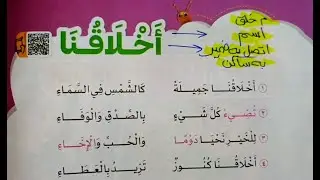 م خلق
اسم
اتصل به ضمير
به ساكن
أَخْلَاقُنَا
١ أَخْلَاقُنَا جَمِيلَةٌ كَالشَّمْسِ فِي السَّمَاءِ
٢ تُضِيءُ كُلَّ شَيْءٍ بِالصِّدْقِ وَالْوَفَاءِ
٣ لِلْخَيْرِ نَحْيَا دَوْمًا وَالْحُبِّ وَالْإِخَاءِ
٤ أَخْلَاقُنَا كُنُوزٌ تَزِيدُ بِالْعَطَاءِ